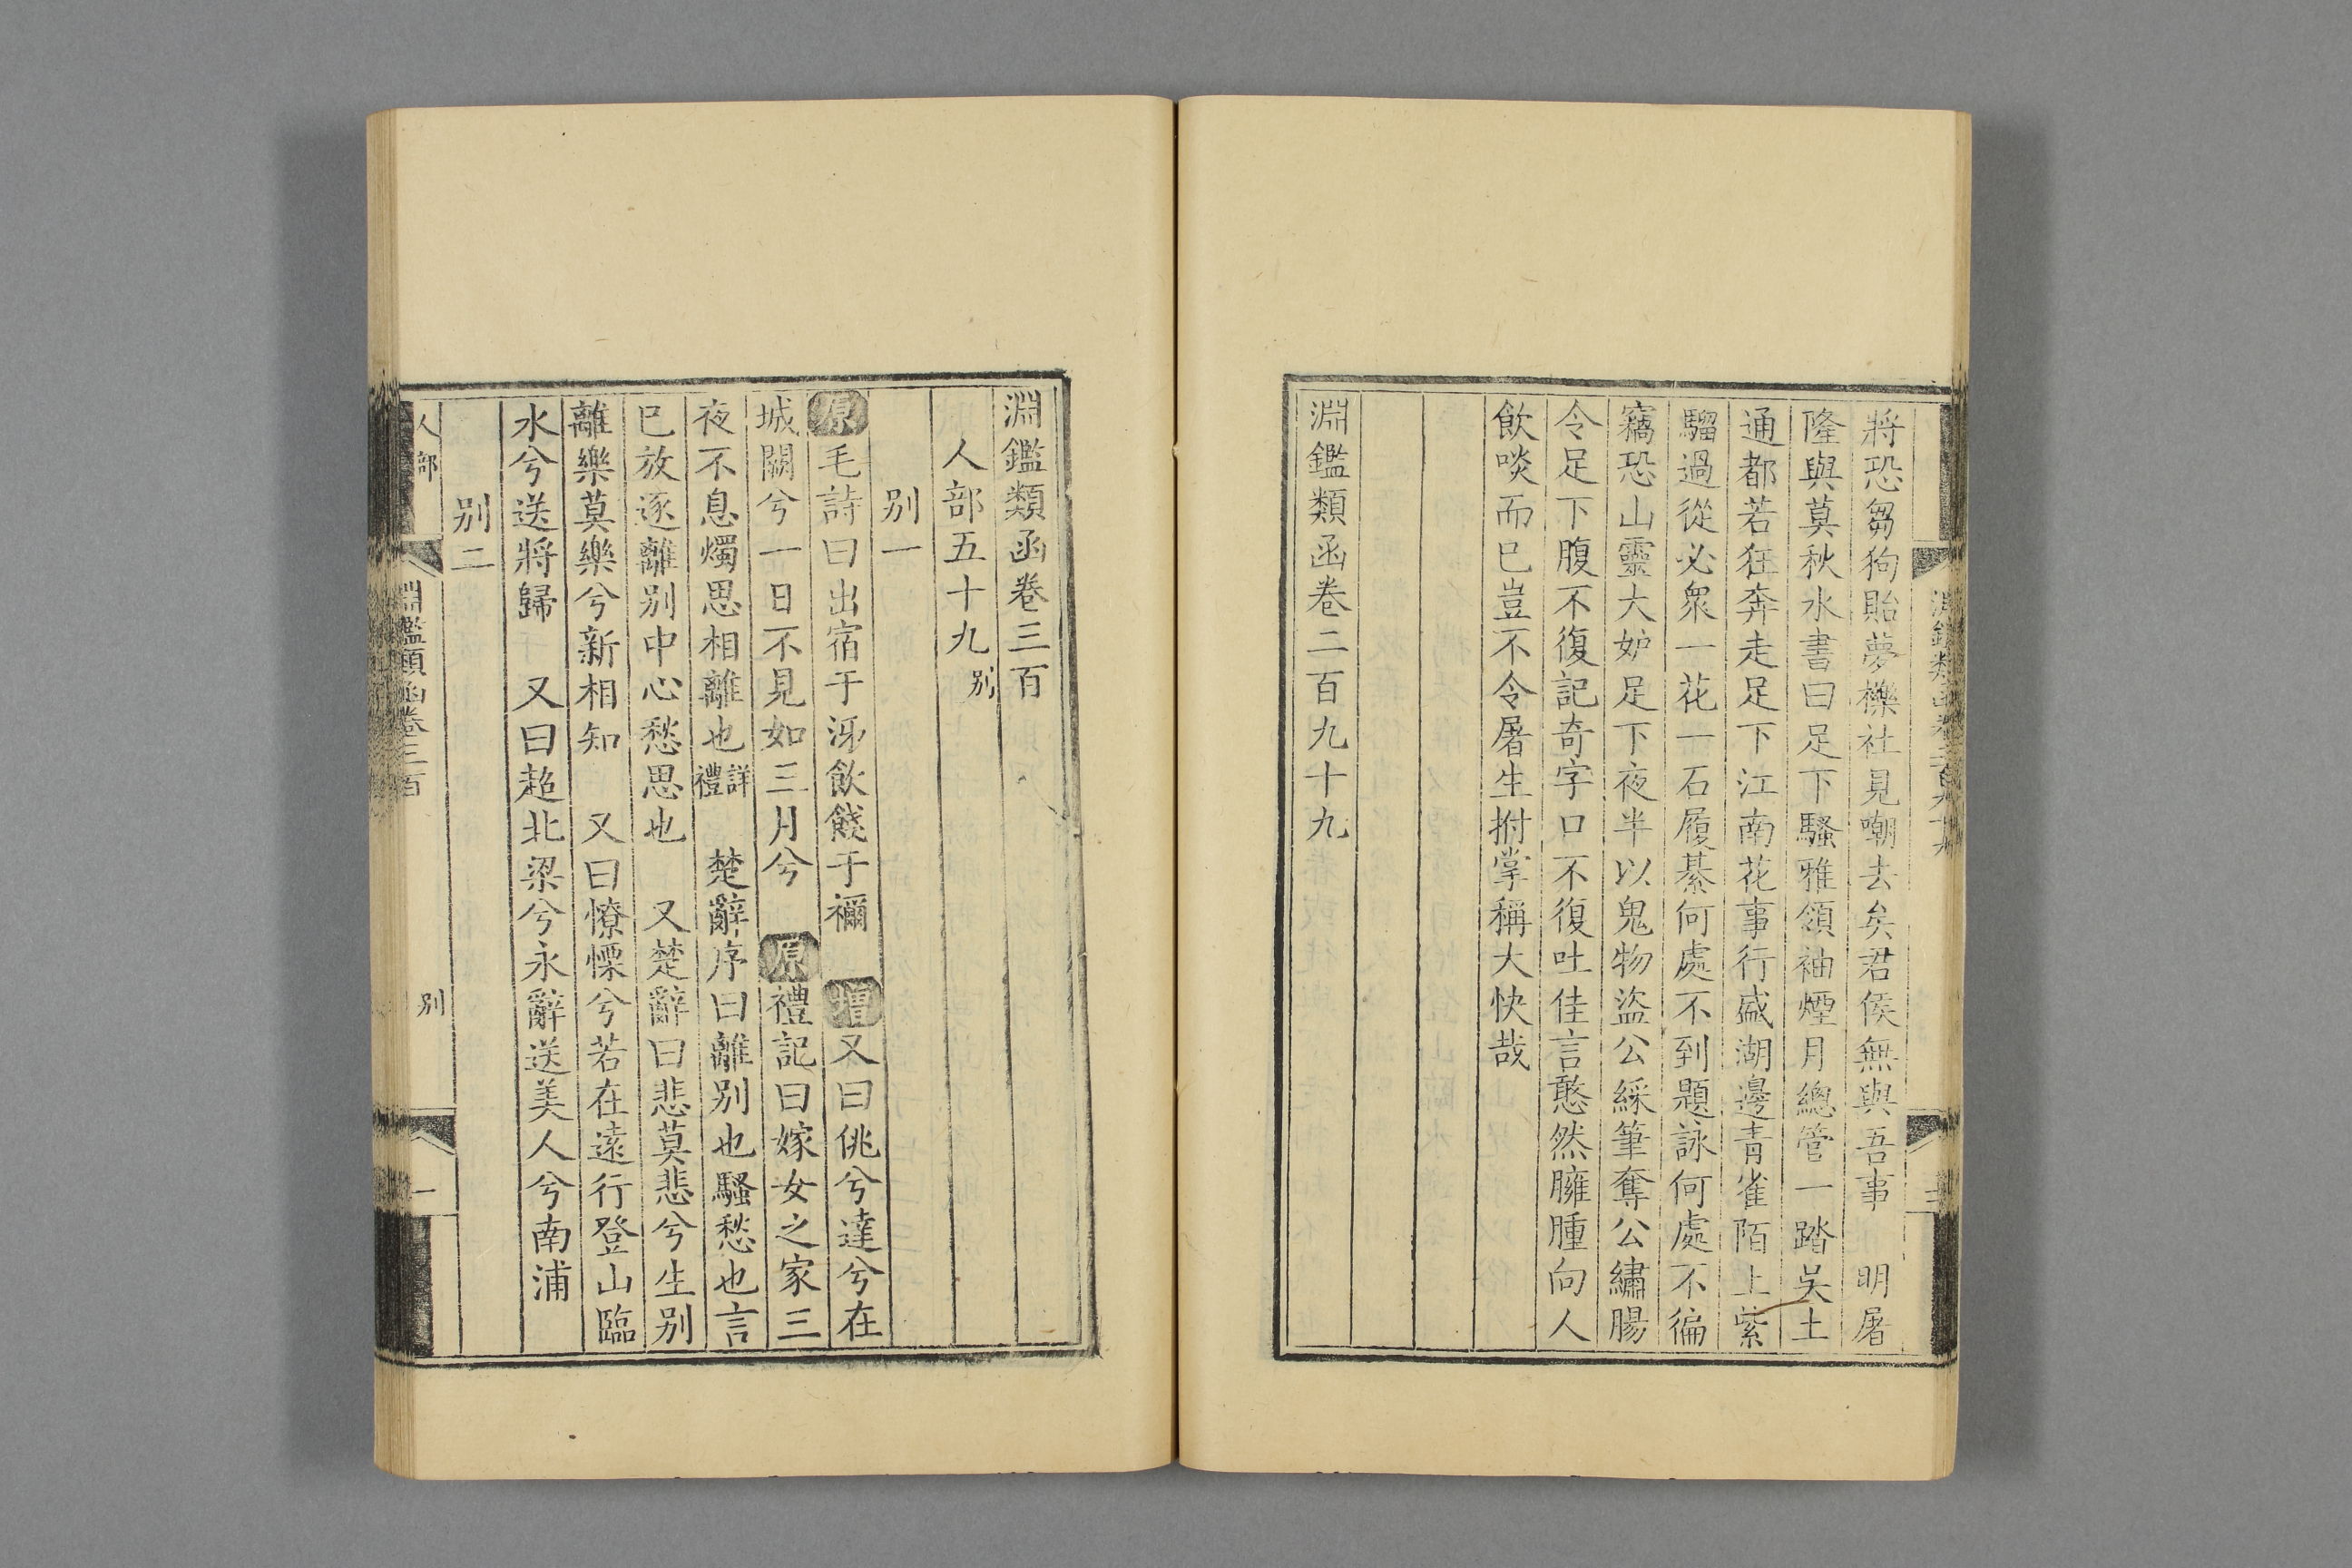 將恐芻狗貽夢櫟社見嘲去矣君侯無與吾事　明屠
隆與莫秋水書曰足下騷雅領袖煙月總管一踏吳土
通都若狂奔走足下江南花事行盛湖邊青雀陌上紫
騮過從必衆一花一石履綦何處不到題詠何處不徧
竊恐山靈大妒足下夜半以鬼物盜公綵筆奪公繡腸
令足下腹不復記奇字口不復吐佳言憨然臃腫向人
飲啖而已豈不令屠生拊掌稱大快哉
淵鑑類函卷二百九十九
淵鑑類函卷三百
人部五十九別
別一
原毛詩曰出宿于泲飲餞于禰　增又曰佻兮達兮在
城闕兮一日不見如三月兮　原禮記曰嫁女之家三
夜不息燭思相離也詳禮　楚辭序曰離別也騷愁也言
已放逐離別中心愁思也　又楚辭曰悲莫悲兮生別
離樂莫樂兮新相知　又曰憭慄兮若在遠行登山臨
水兮送將歸　又曰超北梁兮永辭送美人兮南浦
別二
人部
淵鑑類函卷三百
別
一